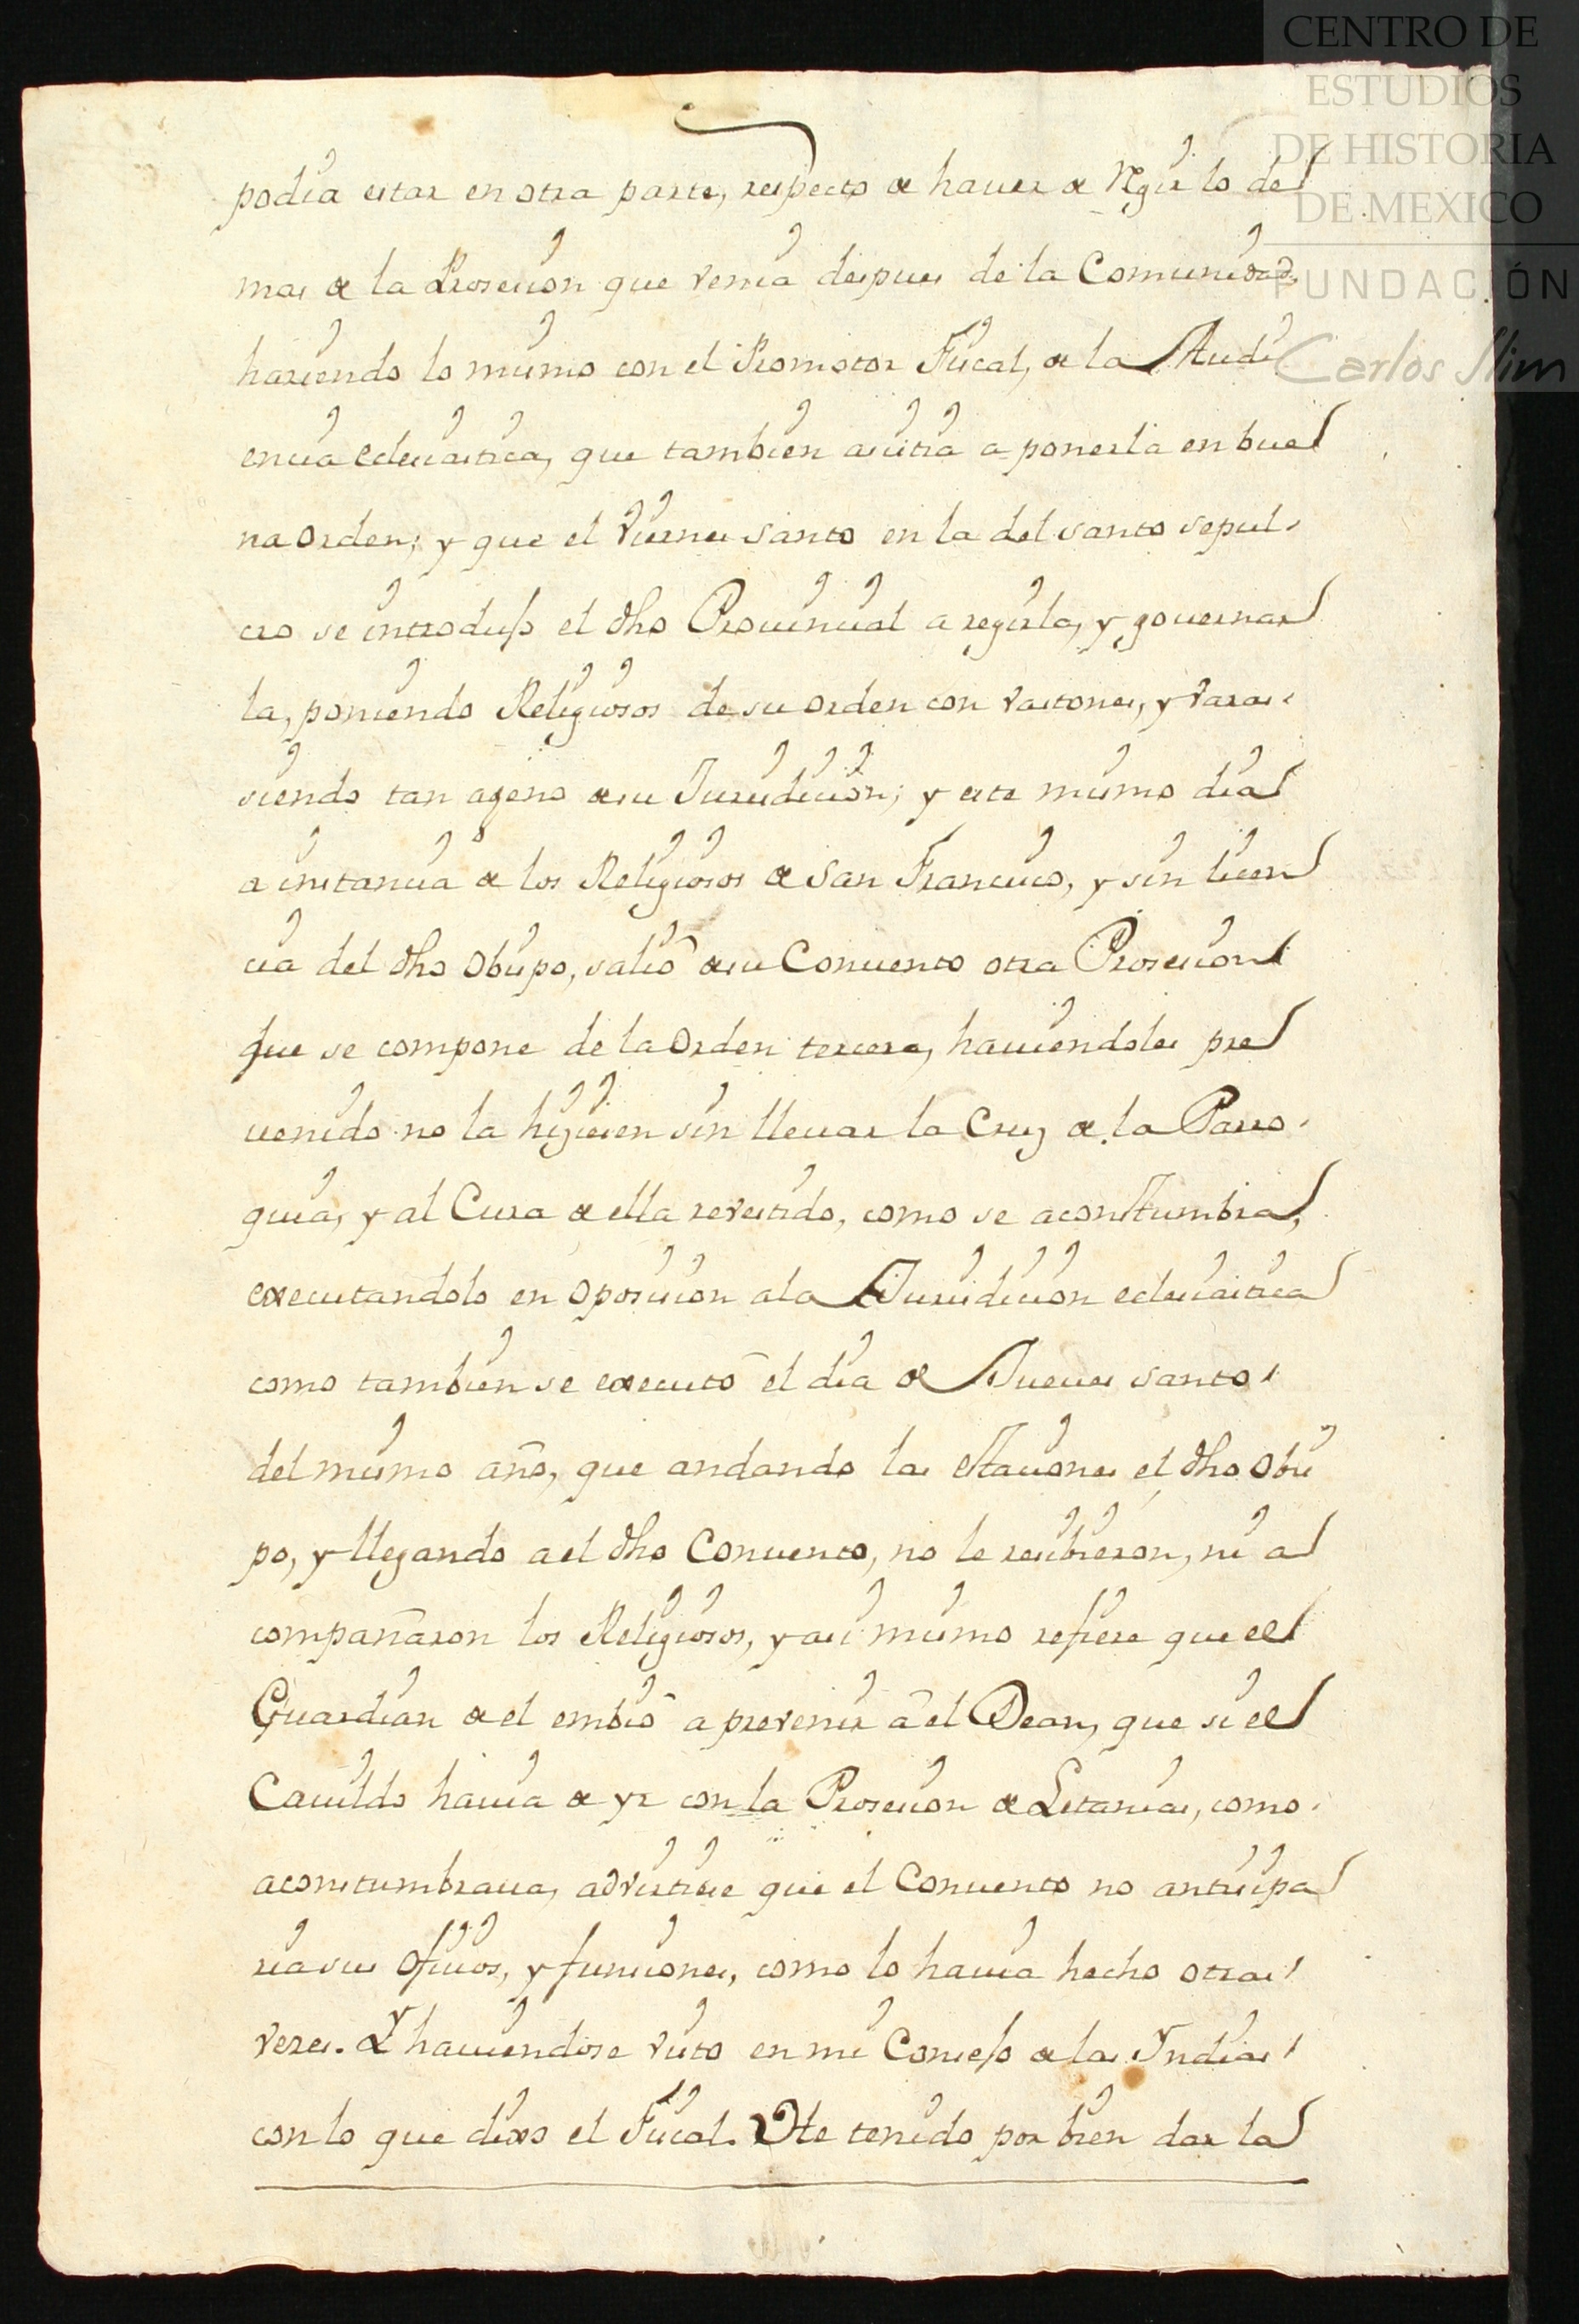 CENTRO DE
ESTUDIOS
DE HISTORIA
DE MEXICO
FUNDACIÓN
Carlos Slim
podia estar en otra parte, respecto de hauer de regir lo de
mas de la Prosecion que venia despues de la Comunidad,
haziendo lo mismo con el Promotor Fiscal, de la Audi
encia eclesiastica, que tambien asistia a ponerla en bue
na orden; y que el Viernes santo en la del santo sepul
cro se introdujo el dho Prouincial a regirla, y gouernar
la, poniendo Religiosos de su orden con vastones, y varas
siendo tan ageno de su Jurisdicion; y este mismo dia
a instancia de los Religiosos de San Francisco, y sin licen
cia del dho Obispo, salió de su Conuento otra Prosecion
que se compone de la Orden tercera, hauiendoles pre
uenido no la hiziesen sin lleuar la Cruz de la Parro
quia, y al Cura de ella revestido, como se aconstumbra,
executandolo en oposicion a la Jurisdicion eclesiastica
como tambien se executó el dia de Jueues santo
del mismo año, que andando las estaciones el dho Obis
po, y llegando a el dho Conuento, no le recibieron, ni a
compañaron los Religiosos, y asi mismo refiere que el
Guardian de el embió a prevenir á el Dean, que si el
Cauildo hauia de yr con la Prosecion de Letanias, como
aconstumbraua, advirtiese que el Conuento no anticipa
ria sus oficios, y funciones, como lo hauia hecho otras
vezes. Y hauiendose visto en mi Consejo de las Yndias
con lo que dixo el Fiscal. He tenido por bien dar la